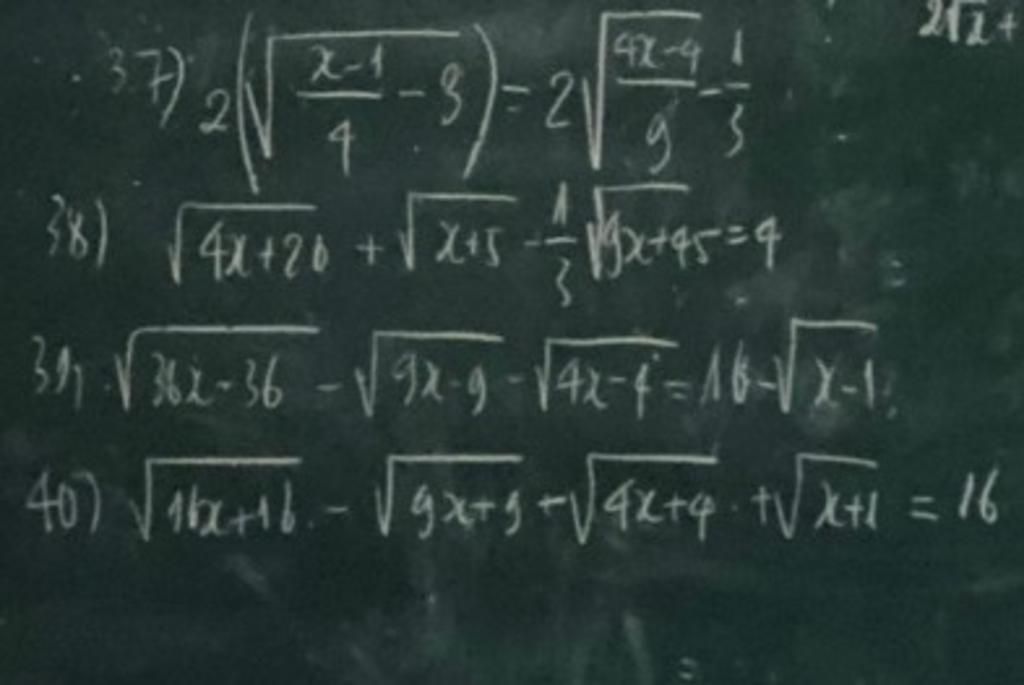 2√x+
37) 2(√((x-1)/4 - 3)) = 2√((4x-4)/9) - 1/3
38) √(4x+20) + √(x+5) - 1/3 √(9x+45) = 4
39) √(36x-36) - √(9x-9) - √(4x-4) = 16 - √(x-1)
40) √(16x+16) - √(9x+9) + √(4x+4) + √(x+1) = 16